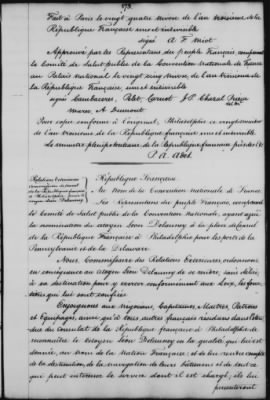 273.
Fait à Paris le vingt quatre nivose de l'an troisieme de la
République Française une et indivisible
signé A. F. Miot
Approuvé par les Représentans du peuple Français composant
le Comité de Salut public de la Convention Nationale de France
au Palais National le vingt cinq nivose de l'an troisieme de
la République Française, une et indivisible
signé Cambaceres, Pelet, Carnot, Prieur
Marec, A. Dumont
Pour copie conforme à l'original, Philadelphie ce
de l'an troisieme de la République française une et indivisible
Le ministre plénipotentiaire de la République française près les E.U.
P. A. Adet
Relations Exterieures
République Française
Au Nom de la Convention nationale de France
Les Représentans du peuple Français, composant
le Comité de Salut public de la Convention Nationale, ayant agréé
la nomination du citoyen Léon Delaunay à la place de Consul
de la République Française à Philadelphie pour les ports de la
Pennsylvanie et de la Delaware
Nous, Commissaire des Relations Exterieures, ordonnons
en conséquence au citoyen Léon Delaunay de se rendre, sans délai,
à sa destination pour y exercer conformément aux Loix, les fonc-
tions qui lui sont confiées
Enjoignons aux Négocians, Capitaines, Maitres, Patrons
et Equipages, ainsi qu'à tous autres français résidans dans l'éten-
due du Consulat de la République française à Philadelphie de
reconnoitre le citoyen Léon Delaunay en la qualité qui lui est
donnée, au nom de la Nation Française, et de lui rendre compte
de la destination, de la navigation de leurs bâtimens et de tout ce
qui peut intéresser le service dont il est chargé, ils lui